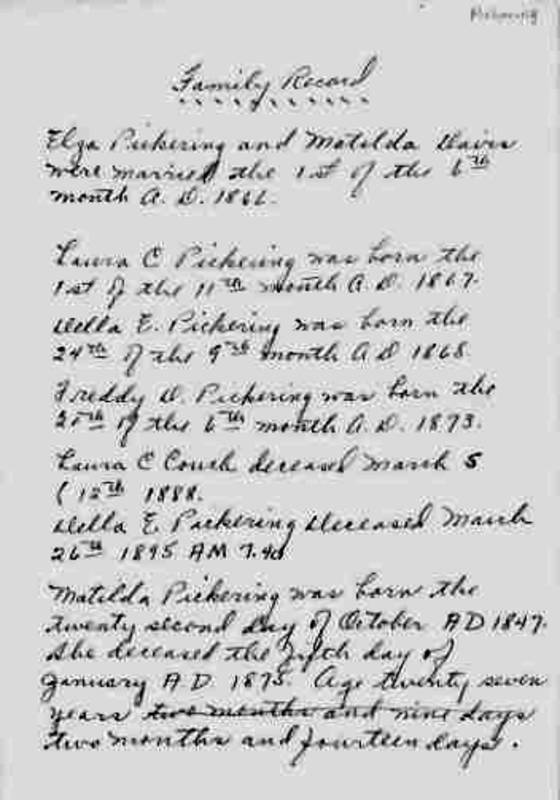 Pickering
Family Record
Elza Pickering and Matilda Davis
were married the 1st of the 6th
month A. D. 1866.
Laura C Pickering was born the
1st of the 11th month A. D. 1867.
Della E. Pickering was born the
24th of the 9th month A D 1868
Freddy D. Pickering was born the
25th of the 6th month A. D. 1873.
Laura C Couch deceased March 5
( 12th 1888.
Della E Pickering Deceased March
26th 1895 AM 7.40
Matilda Pickering was born the
twenty second day of October A D 1847.
She deceased the fifth day of
January A. D. 1875. Age twenty seven
years two months and nine days
two months and fourteen days.